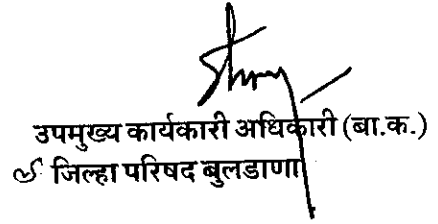 उपमुख्य कार्यकारी अधिकारी (बा.क.)
जिल्हा परिषद बुलडाणा